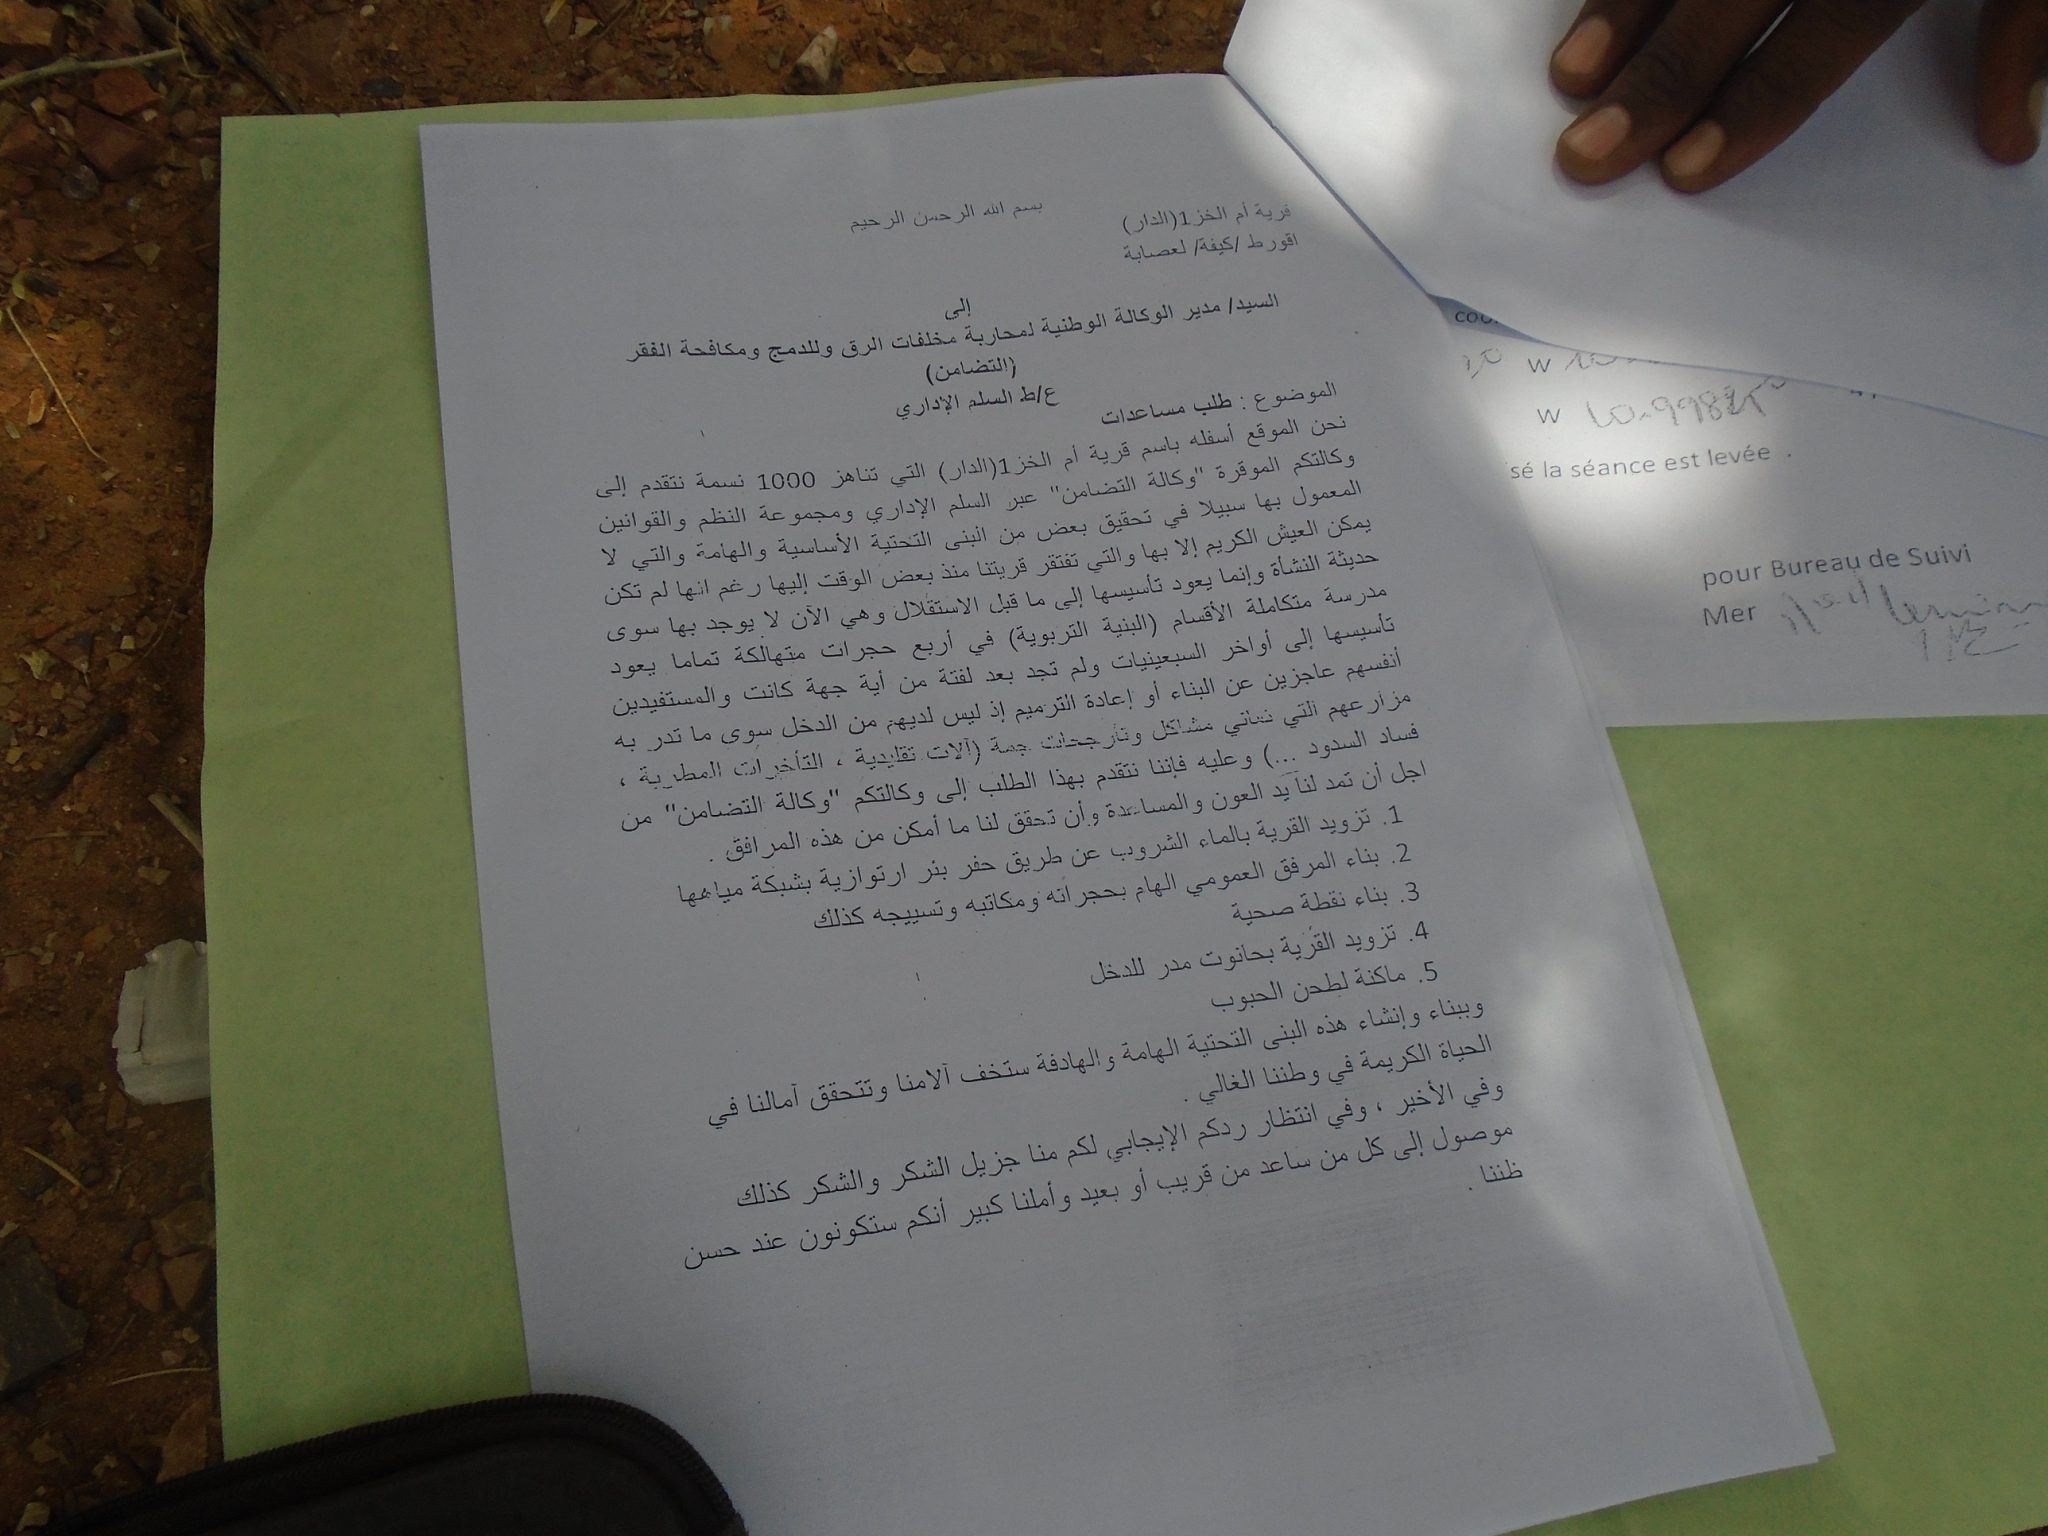 بسم الله الرحمن الرحيم
قرية أم الخز1(الدار)
اقورط /كيفة/ لعصابة
إلى
السيد/ مدير الوكالة الوطنية لمحاربة مخلفات الرق وللدمج ومكافحة الفقر
(التضامن)
ع/ط السلم الإداري
الموضوع : طلب مساعدات
نحن الموقع أسفله باسم قرية أم الخز1(الدار) التي تناهز 1000 نسمة نتقدم إلى
وكالتكم الموقرة "وكالة التضامن" عبر السلم الإداري ومجموعة النظم والقوانين
المعمول بها سبيلا في تحقيق بعض من البنى التحتية الأساسية والهامة والتي لا
يمكن العيش الكريم إلا بها والتي تفتقر قريتنا منذ بعض الوقت إليها رغم انها لم تكن
حديثة النشأة وإنما يعود تأسيسها إلى ما قبل الاستقلال وهي الآن لا يوجد بها سوى
مدرسة متكاملة الأقسام (البنية التربوية) في أربع حجرات متهالكة تماما يعود
تأسيسها إلى أواخر السبعينيات ولم تجد بعد لفتة من أية جهة كانت والمستفيدين
أنفسهم عاجزين عن البناء أو إعادة الترميم إذ ليس لديهم من الدخل سوى ما تدر به
مزارعهم التي تعاني مشاكل وتأرجحات جمة (آلات تقليدية ، التأخرات المطرية ،
فساد السدود ...) وعليه فإننا نتقدم بهذا الطلب إلى وكالتكم "وكالة التضامن" من
اجل أن تمد لنا يد العون والمساعدة وأن تحقق لنا ما أمكن من هذه المرافق .
1. تزويد القرية بالماء الشروب عن طريق حفر بئر ارتوازية بشبكة مياهها
2. بناء المرفق العمومي الهام بحجراته ومكاتبه وتسييجه كذلك
3. بناء نقطة صحية
4. تزويد القرية بحانوت مدر للدخل
5. ماكنة لطحن الحبوب
وببناء وإنشاء هذه البنى التحتية الهامة والهادفة ستخف آلامنا وتتحقق آمالنا في
الحياة الكريمة في وطننا الغالي .
وفي الأخير ، وفي انتظار ردكم الإيجابي لكم منا جزيل الشكر والشكر كذلك
موصول إلى كل من ساعد من قريب أو بعيد وأملنا كبير أنكم ستكونون عند حسن
ظننا .
w
w
sé la séance est levée .
pour Bureau de Suivi
Mer